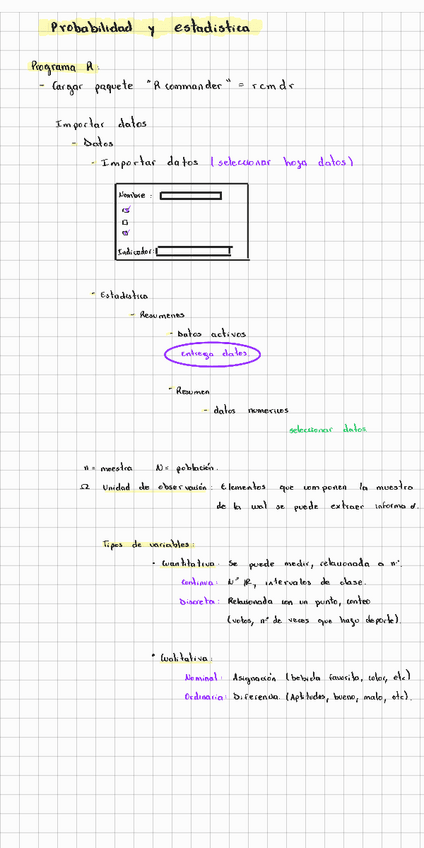 Probabilidad y estadistica
Programa R:
- Cargar paquete "R commander" = rcmdr
Importar datos
- Datos
- Importar datos (seleccionar hoja datos)
Nombre:
Indicador:
- Estadistica
- Resumenes
- Datos activos
entrega datos
- Resumen
- datos numericos
seleccionar datos
n = muestra N = población.
Ω Unidad de observación: Elementos que componen la muestra
de la cual se puede extraer informa
Tipos de variables:
• Cuantitativa: Se puede medir, relacionada a n°.
Continua: N° IR, intervalos de clase.
Discreta: Relacionada con un punto, conteo
(votos, n° de veces que hago deporte)
• Cualitativa:
Nominal: Asignación (bebida favorita, color, etc)
Ordinaria: Diferencia (Aptitudes, bueno, malo, etc).